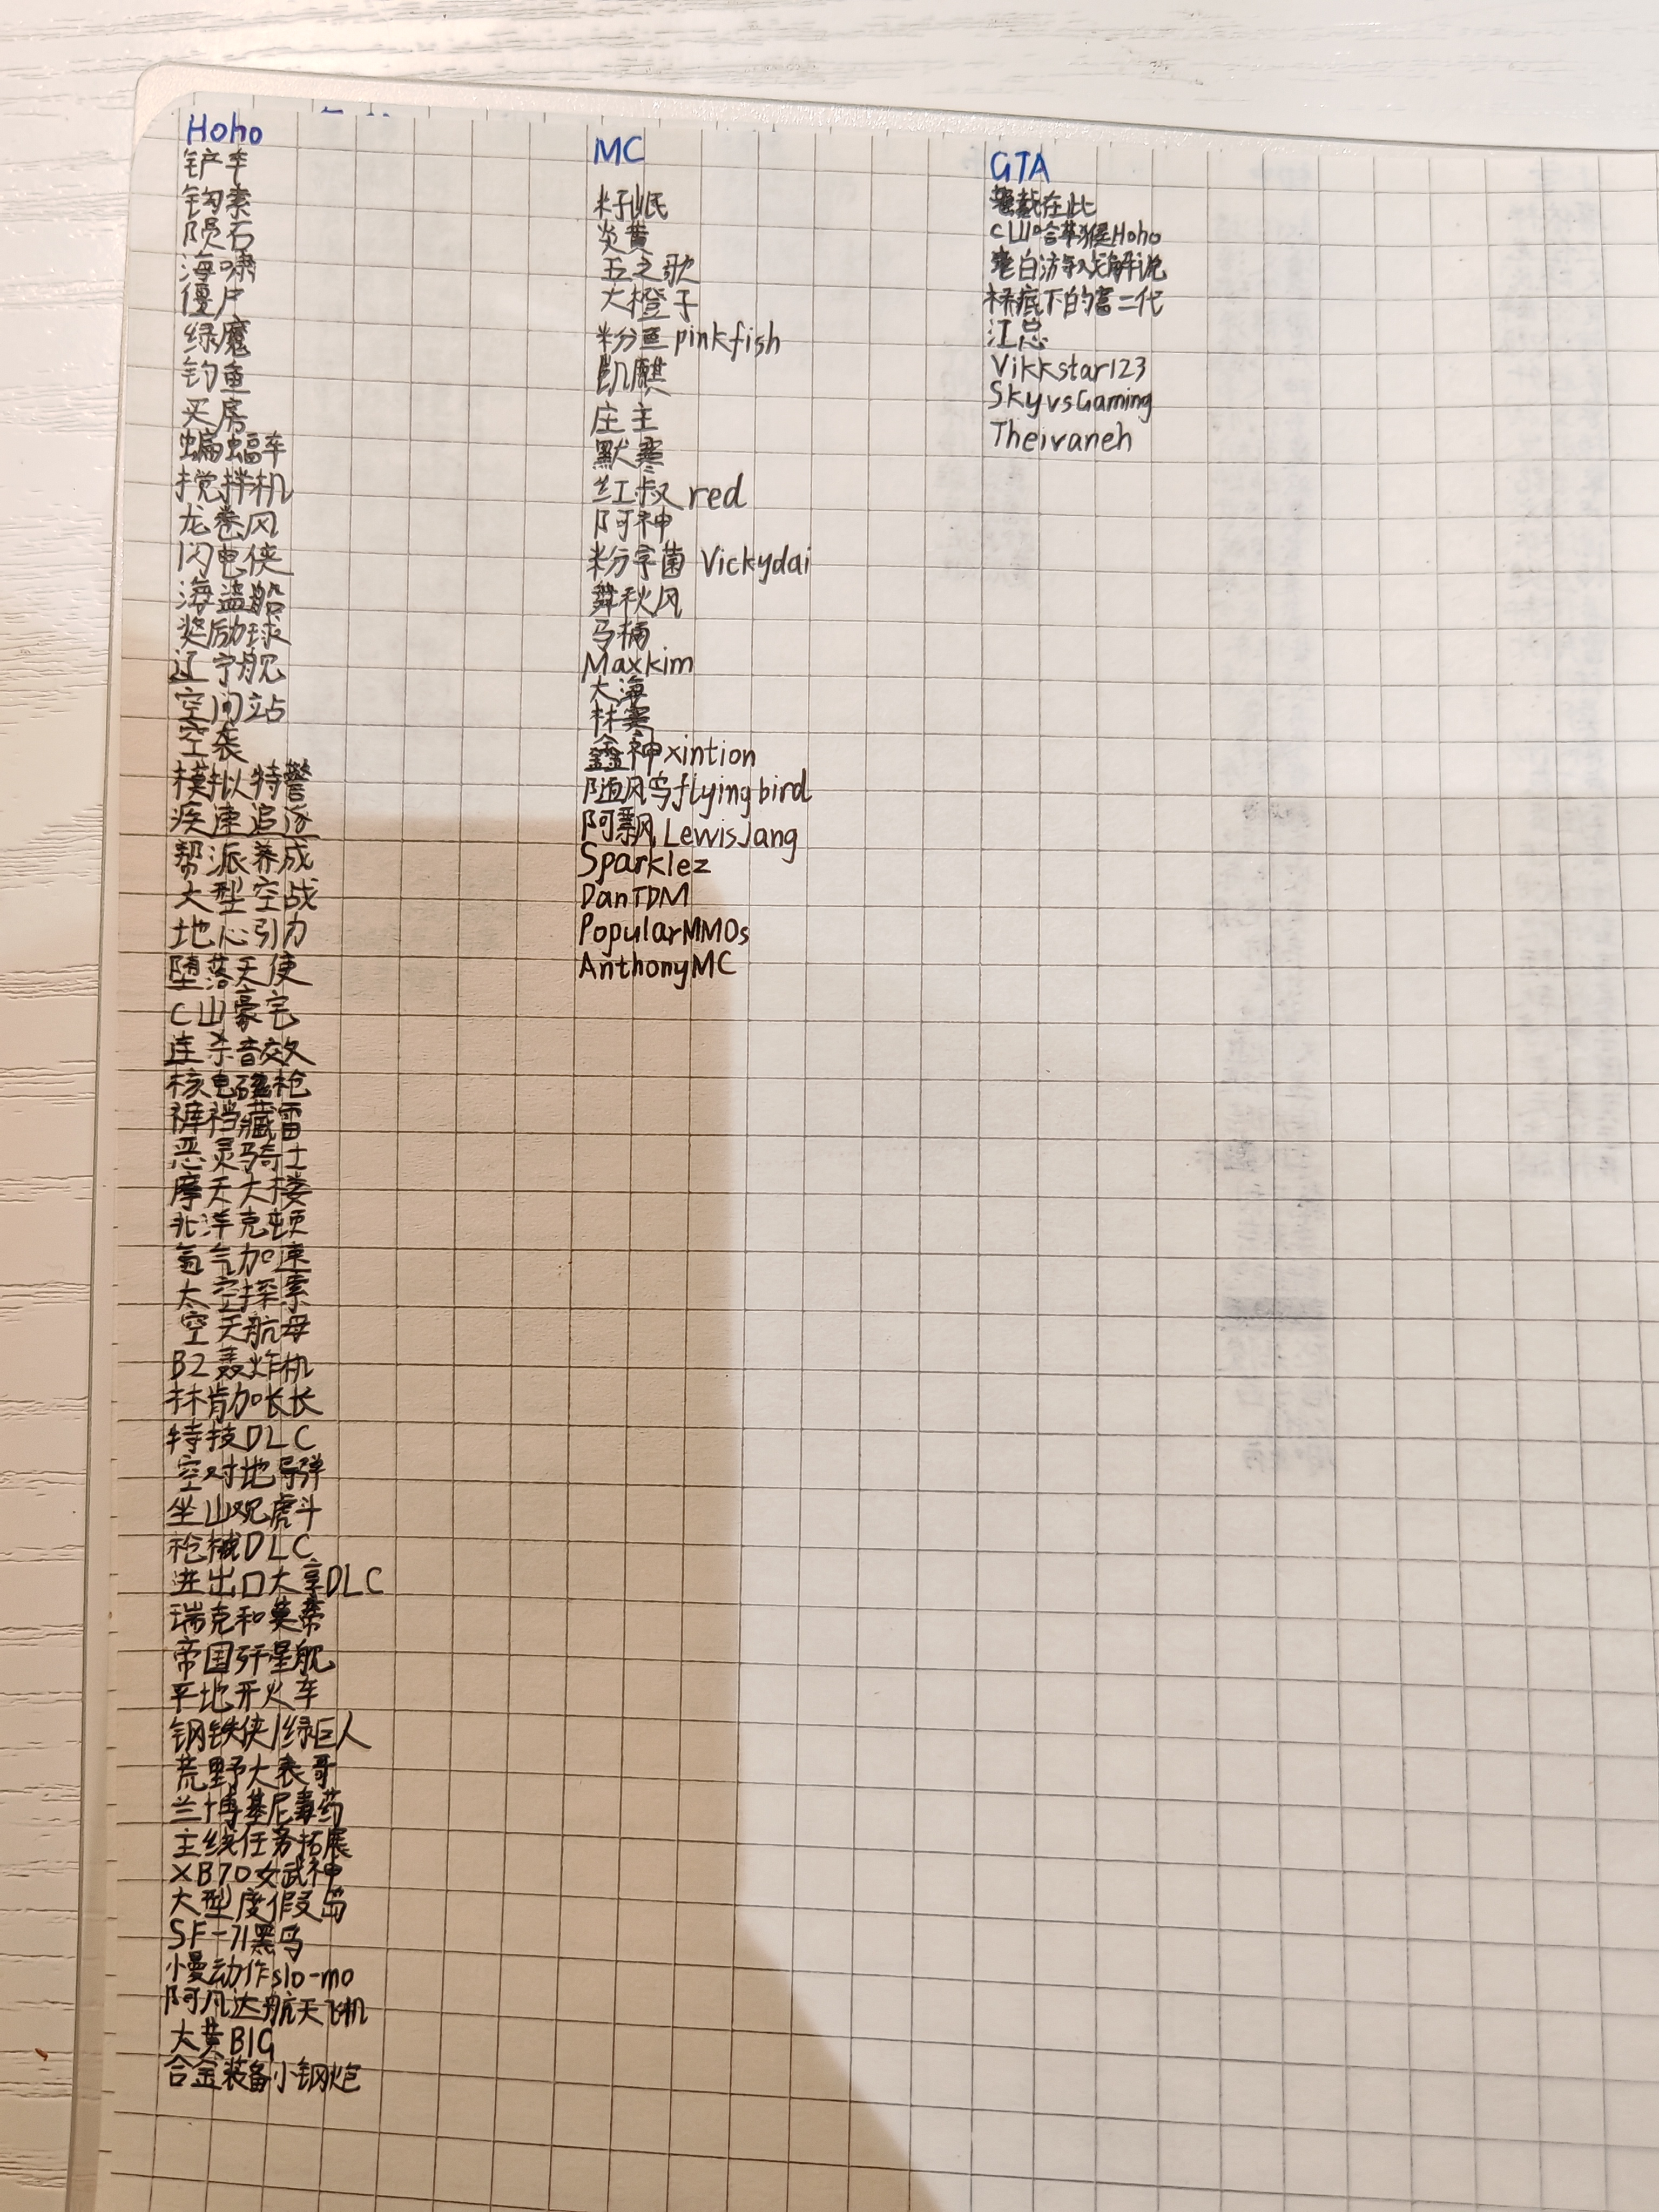 Hoho
铲车
钩索
陨石
海啸
僵尸
绿魔
钓鱼
买房
蝙蝠车
搅拌机
龙卷风
闪电侠
海盗船
奖励球
辽宁舰
空间站
空袭
模拟特警
疾速追逐
帮派养成
大型空战
地心引力
堕落天使
C山豪宅
连杀音效
核电磁枪
裤裆藏雷
恶灵骑士
摩天大楼
北洋克顿
氮气加速
太空探索
空天航母
B2轰炸机
林肯加长长
特技DLC
空对地导弹
坐山观虎斗
枪械DLC
进出口大享DLC
瑞克和莫蒂
帝国歼星舰
平地开火车
钢铁侠/绿巨人
荒野大表哥
兰博基尼毒药
主线任务拓展
XB70女武神
大型度假岛
SF-71黑鸟
慢动作slo-mo
阿凡达航天飞机
大黄BIG
合金装备小钢炮
MC
籽岷
炎黄
五之歌
大橙子
粉鱼pinkfish
凯麒
庄主
默寒
红叔red
阿神
粉字菌 Vickydai
舞秋风
马桶
Maxkim
大海
林寒
鑫神xintion
随风鸟flyingbird
阿飘LewisJang
Sparklez
DanTDM
PopularMMOs
AnthonyMC
GTA
在此
C山哈草猴Hoho
老白游戏解说
桥底下的富二代
江总
Vikkstar123
SkyvsGaming
Theivaneh